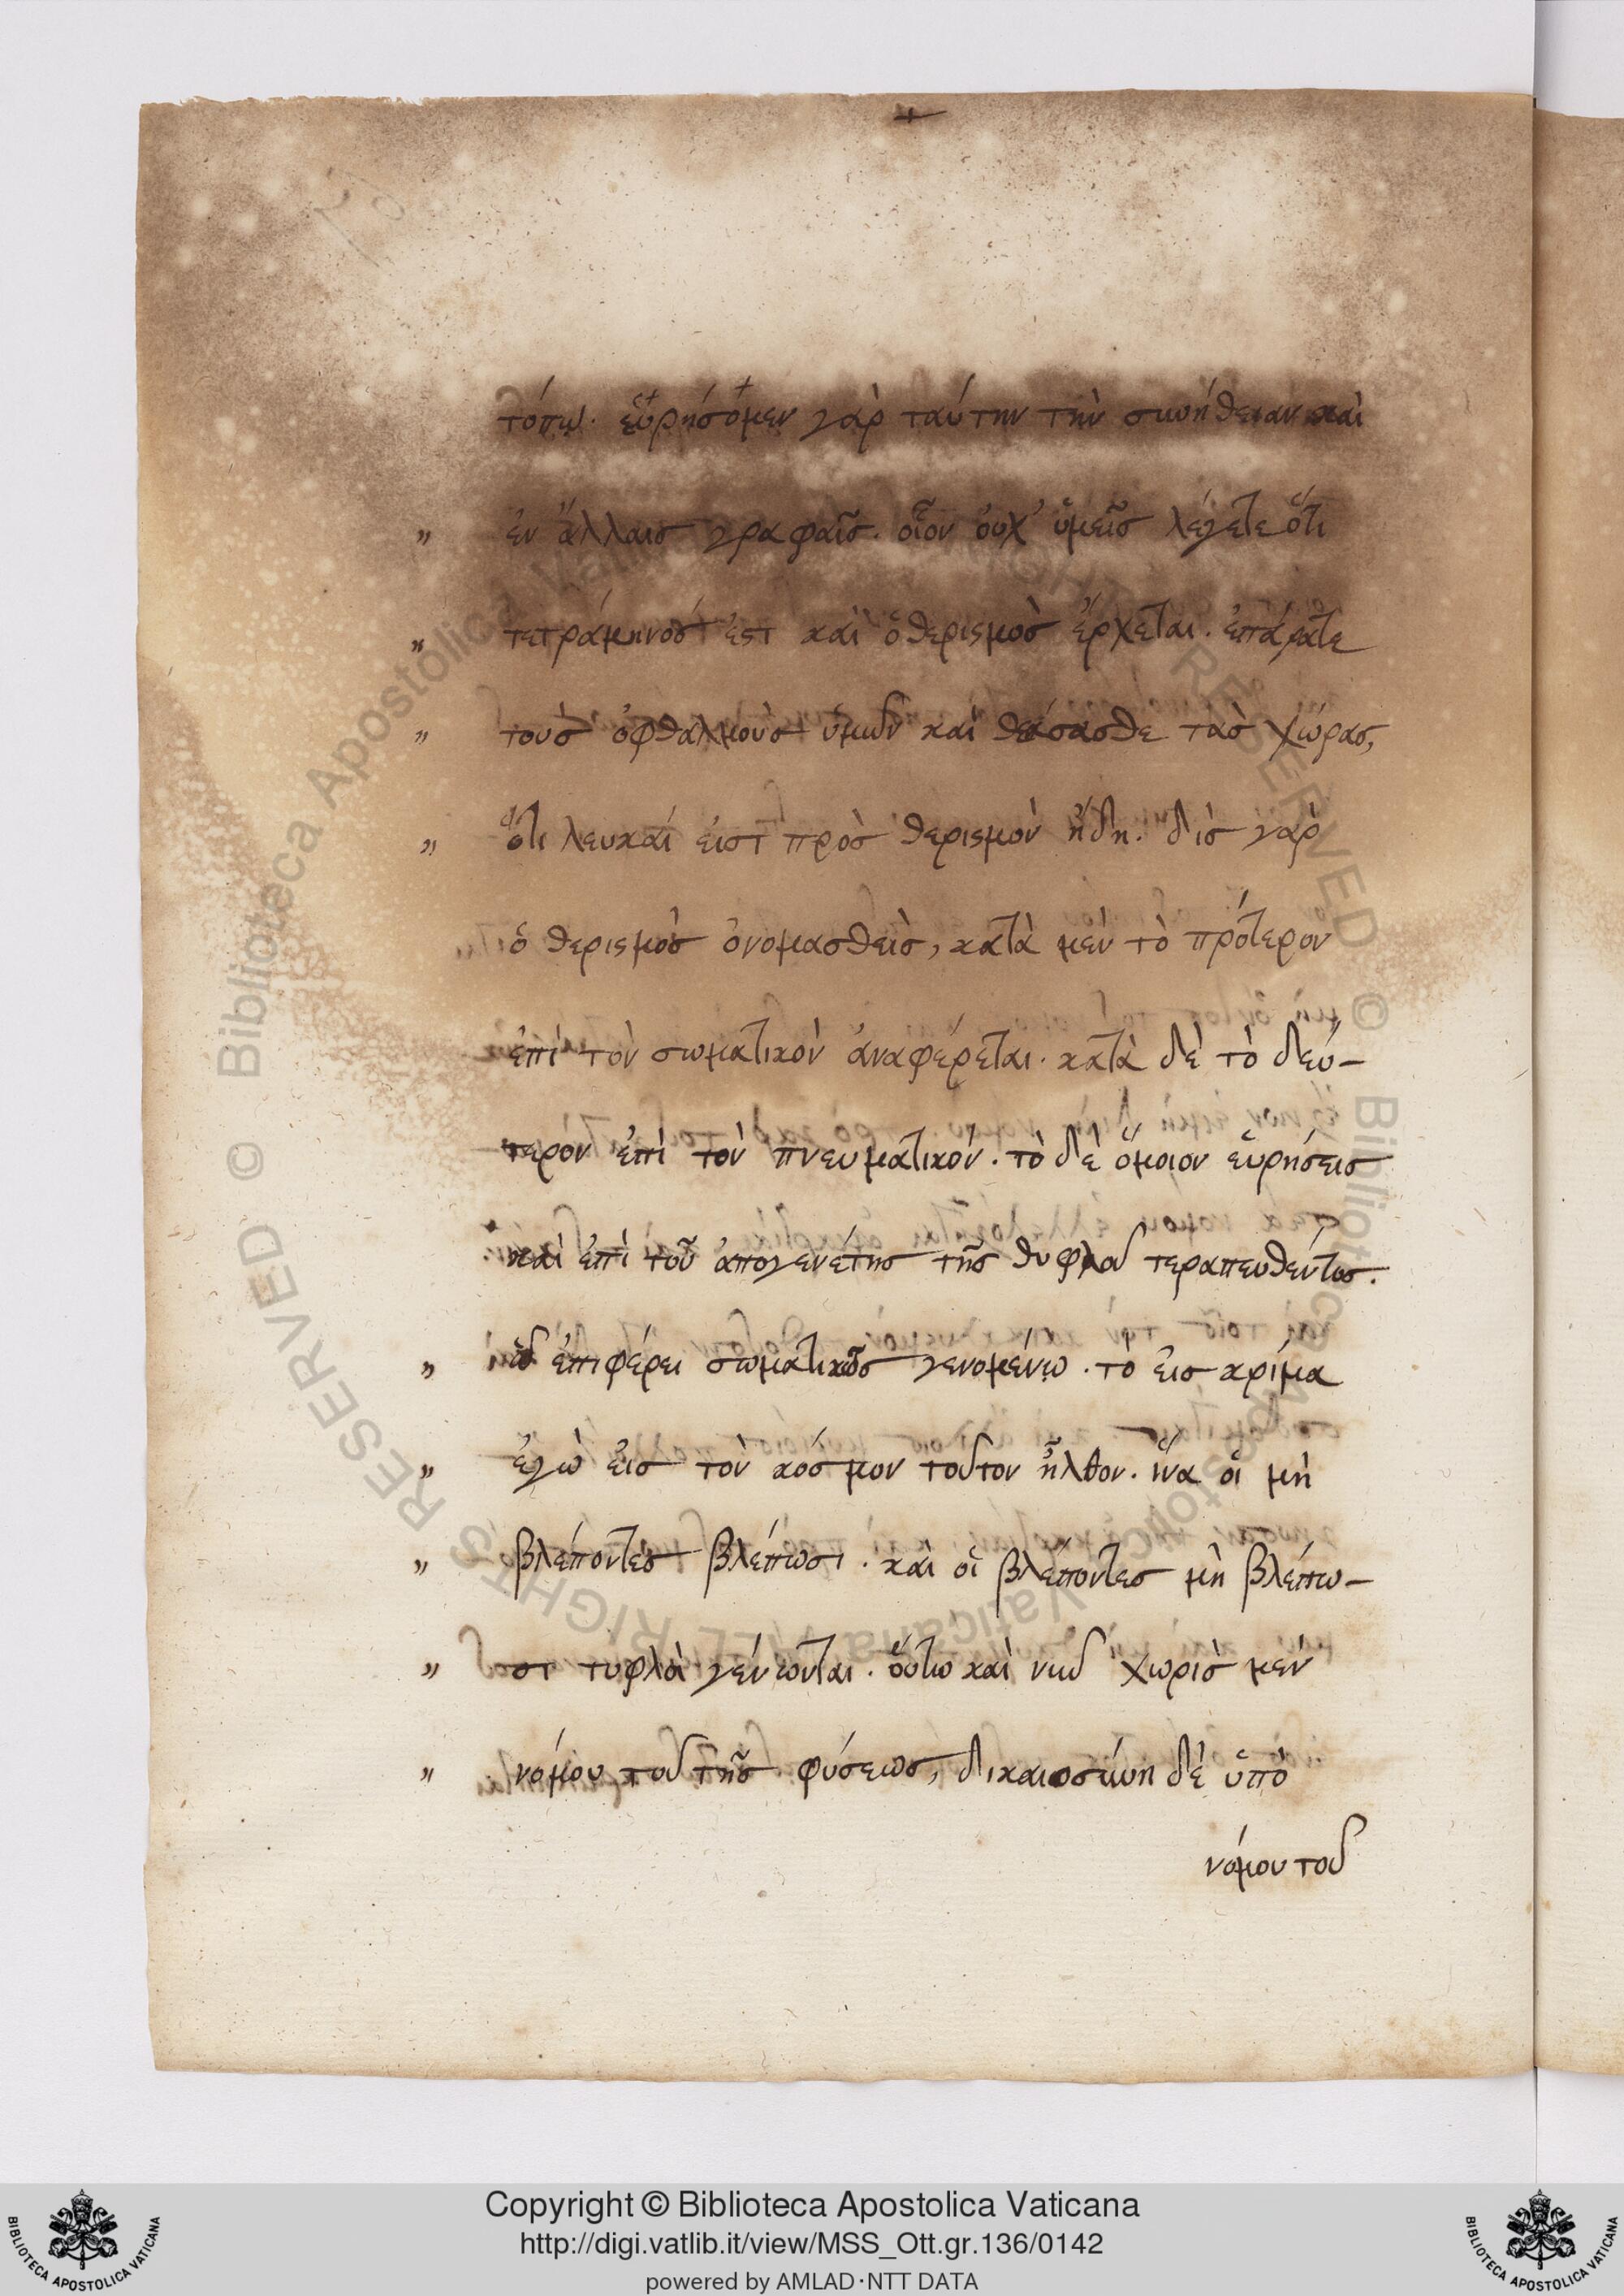 τόπῳ. εὑρήσομεν γὰρ ταύτην τὴν συνήθειαν καὶ
„ ἐν ἄλλαις γραφαῖς. οἷον οὐχ᾽ ὑμεῖς λέγετε ὅτι
„ τετράμηνός ἐστι καὶ ὁ θερισμὸς ἔρχεται. ἐπάρατε
„ τοὺς ὀφθαλμοὺς ὑμῶν καὶ θεάσασθε τὰς χώρας,
„ ὅτι λευκαί εἰσι πρὸς θερισμὸν ἤδη. δὶς γὰρ
ὁ θερισμὸς ὀνομασθεὶς, κατὰ μὲν τὸ πρότερον
ἐπὶ τὸν σωματικὸν ἀναφέρεται. κατὰ δὲ τὸ δεύ-
τερον ἐπὶ τὸν πνευματικόν. τὸ δὲ ὅμοιον εὑρήσεις
καὶ ἐπὶ τοῦ ἀπογενέτης τῆς θυφλοῦ τεραπευθέντος.
„ ἐπιφέρει σωματικῶς γενομένῳ. τὸ εἰς κρίμα
„ ἐγὼ εἰς τὸν κόσμον τοῦτον ἦλθον. ἵνα οἱ μὴ
„ βλέποντες βλέπωσι. καὶ οἱ βλέποντες μὴ βλέπω-
„ σι τυφλοὶ γένωνται. οὕτω καὶ νῦν χωρὶς μὲν
„ νόμου τοῦ τῆς φύσεως, δικαιοσύνη δὲ ὑπὸ
νόμου τοῦ
Copyright © Biblioteca Apostolica Vaticana
http://digi.vatlib.it/view/MSS_Ott.gr.136/0142
powered by AMLAD·NTT DATA